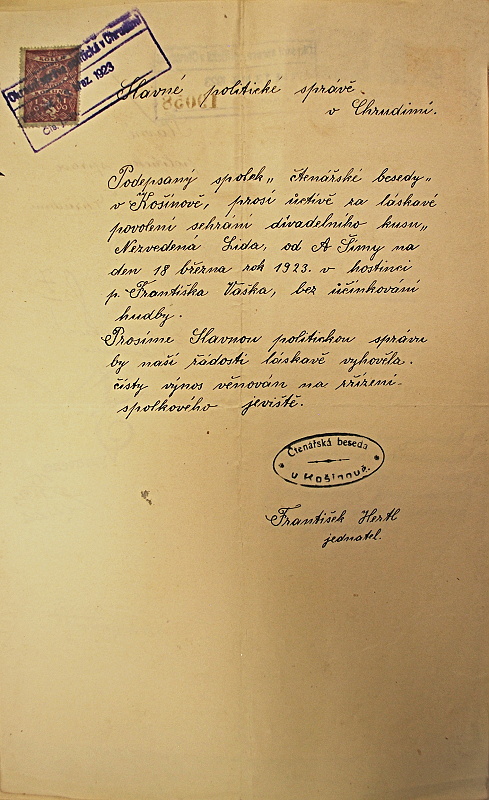 KOLEK
březz 1923
Slavné politické správě
v Chrudimi.
Podepsaný spolek „čtenářské besedy"
v Košinově, prosí uctivě za láskavé
povolení sehrání divadelního kusu „
Nezvedena Lida, od A Šimy na
den 18 března rok 1923. v hostinci
p. Františka Váška, bez účinkování
hudby.
Prosíme Slavnou politickou správu
by naší žádosti láskavě vyhověla.
čistý výnos věnován na zřízení
spolkového jeviště.
Čtenářská beseda
v Košinově.
František Hertl
jednatel.